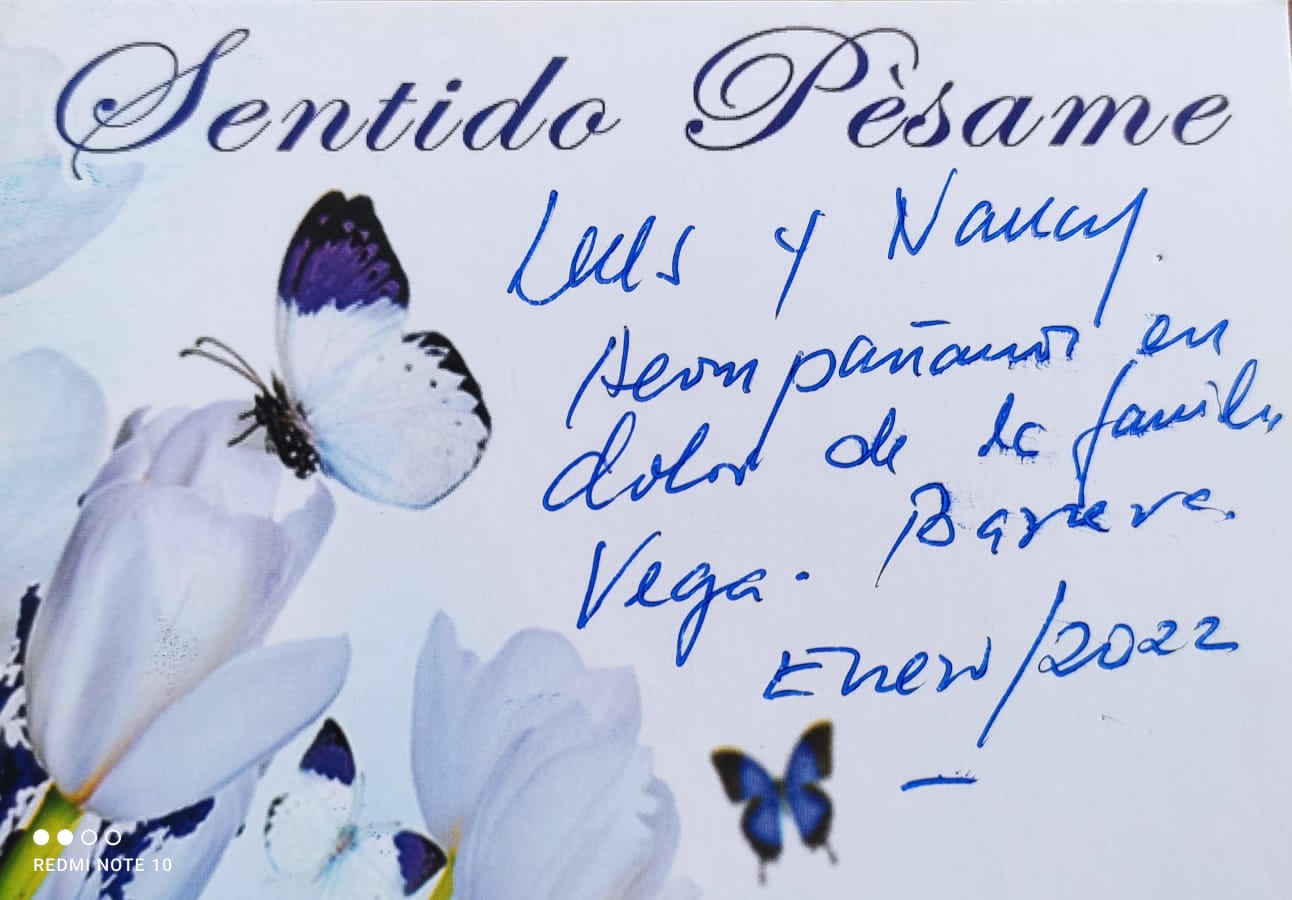 Sentido Pèsame
Luis y Nancy.
Acompañamos en
dolor de la familia
Vega. Barrera.
Enero/2022
REDMI NOTE 10